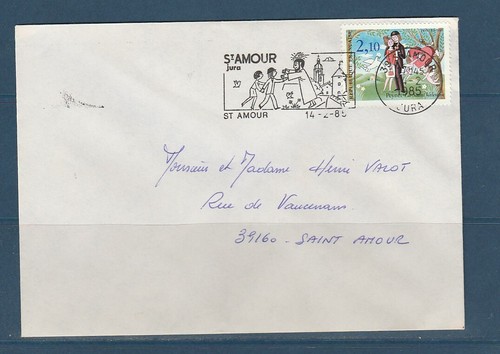 ST AMOUR
Jura
ST AMOUR
14-2-85
2,10
39 ST AMOUR
1985
JURA
Monsieur et Madame Henri VALOT
Rue de Vaucenans
39160 - SAINT AMOUR